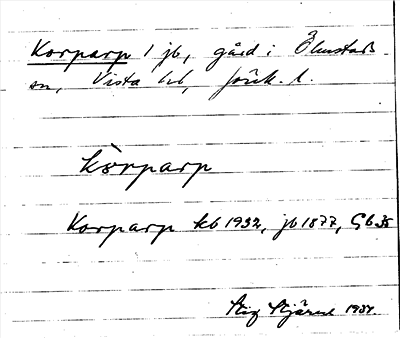 Korparp 1 jb, gård i Ölmstads
sn, Vista hd, Jönk. l.
kòrparp
Korparp kb 1932, jb 1877, Gb 35
Stig Stjärne 1937